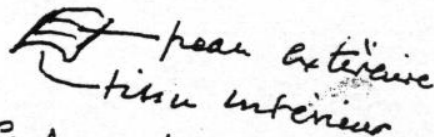 peau extérieure
tissu intérieur